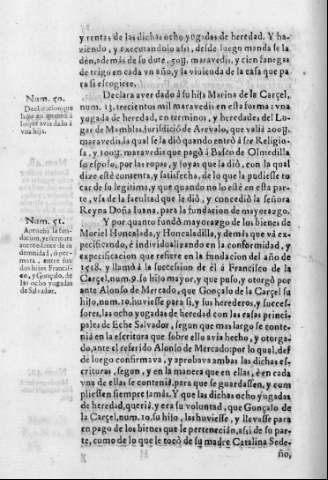 y rentas de las dichas ocho yugadas de heredad. Y ha-
ziendo, y executandolo assi, desde luego manda se la
den, además de su dote, 50y. maravedis, y cien fanegas
de trigo en cada vn año, y la vivienda de la casa que pa
ra si escogiere.
Num. 50.
hizo
aver dado à
vna hija.
Declara aver dado à su hija Marina de la Carçel,
num. 13. trecientos mil maravedis en esta forma: vna
yugada de heredad, en terminos, y heredades del Lu-
gar de Mamblas, jurisdició de Arevalo, que valiá 200y.
maravedis, la qual se la dió quando entró à ser Religio-
sa, y 100y. maravedis que pagó à Basco de Olmedilla
su esposo, por las ropas, y joyas que la dió, con la qual
dize està contenta, y satisfecha, de lo que la pudiesse to
car de su legitima, y que quando no lo estè en esta par-
te, vsa de la facultad que le dió, y concedió la señora
Reyna Doña Iuana, para la fundacion de mayorazgo.
Num. 51.
Aprueba la fun-
dacion, y escritura
antecedente de in
demnidad, ò per-
muta, entre sus
dos hijos Francis-
co, y Gonçalo, de
las ocho yugadas
de Salvador.
Y por quanto fundó mayorazgo de los bienes de
Moriel Honcalada, y Honcaladilla, y demàs que và ex-
pecificando, è individualizando en la conformidad, y
expecificacion que refiere en la fundacion del año de
1518. y llamó à la succession de èl à Francisco de la
Carçel, num. 9. su hijo mayor, y que puso, y otorgó por
ante Alonso de Mercado, que Gonçalo de la Carçel su
hijo, num. 10. huviesse para si, y sus herederos, y succes-
sores, las ocho yugadas de heredad con las casas princi-
pales de Eche Salvador, segun que mas largo se conte-
nia en la escritura que sobre ello avia hecho, y otorga-
do, ante el referido Alonso de Mercado: por lo qual, des
de luego confirmava, y aprobava ambas las dichas es-
crituras, segun, y en la manera que en ellas, è en cada
vna de ellas se contenia, para que se guardassen, y cum
pliessen siempre jamàs. Y que las dichas ocho yugadas
de heredad, queria, y era su voluntad, que Gonçalo de
la Carçel, num. 10. su hijo, las huviesse, y llevasse para
en pago de los bienes que le pertenecian, assi de su par-
te, como de lo que le tocó de su madre Catalina Sede-
ño,